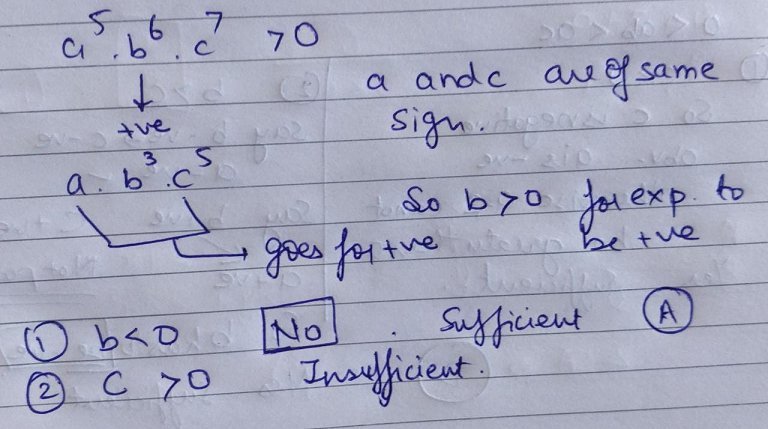 a⁵ . b⁶ . c⁷ > 0
↓
+ve
a and c are of same
sign.
a . b³ . c⁵
So b > 0 for exp. to
be +ve
→ goes for +ve
① b < 0 No . Sufficient Ⓐ
② C > 0 Insufficient.